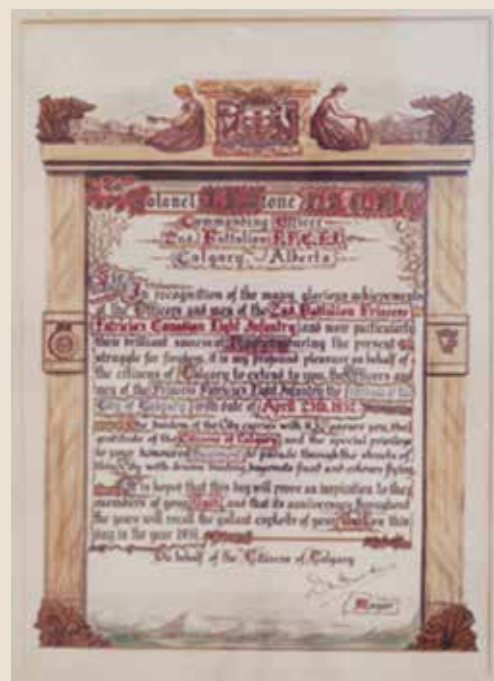 To
Colonel J.R. Stone D.S.O., M.C.
Commanding Officer
2nd Battalion P.P.C.L.I.
Calgary, Alberta
Sir
In recognition of the many glorious achievements
of the Officers and men of the 2nd Battalion Princess
Patricia's Canadian Light Infantry and most particularly
their brilliant success at during the present
struggle for freedom, it is my profound pleasure on behalf of
the citizens of Calgary to extend to you, the Officers and
men of the Princess Patricia's Light Infantry the Freedom of the
City of Calgary with date of April 25th, 1951.
The freedom of the City carries with it, wherever you, the
gratitude of the Citizens of Calgary and the special privilege
to your honoured to parade through the streets of
this City with drums beating, bayonets fixed and colours flying
It is hoped that this day will prove an inspiration to the
members of your Unit and that its anniversary throughout
the years will recall the gallant exploits of your on this
day in the year 1951.
On behalf of the Citizens of Calgary
Mayor